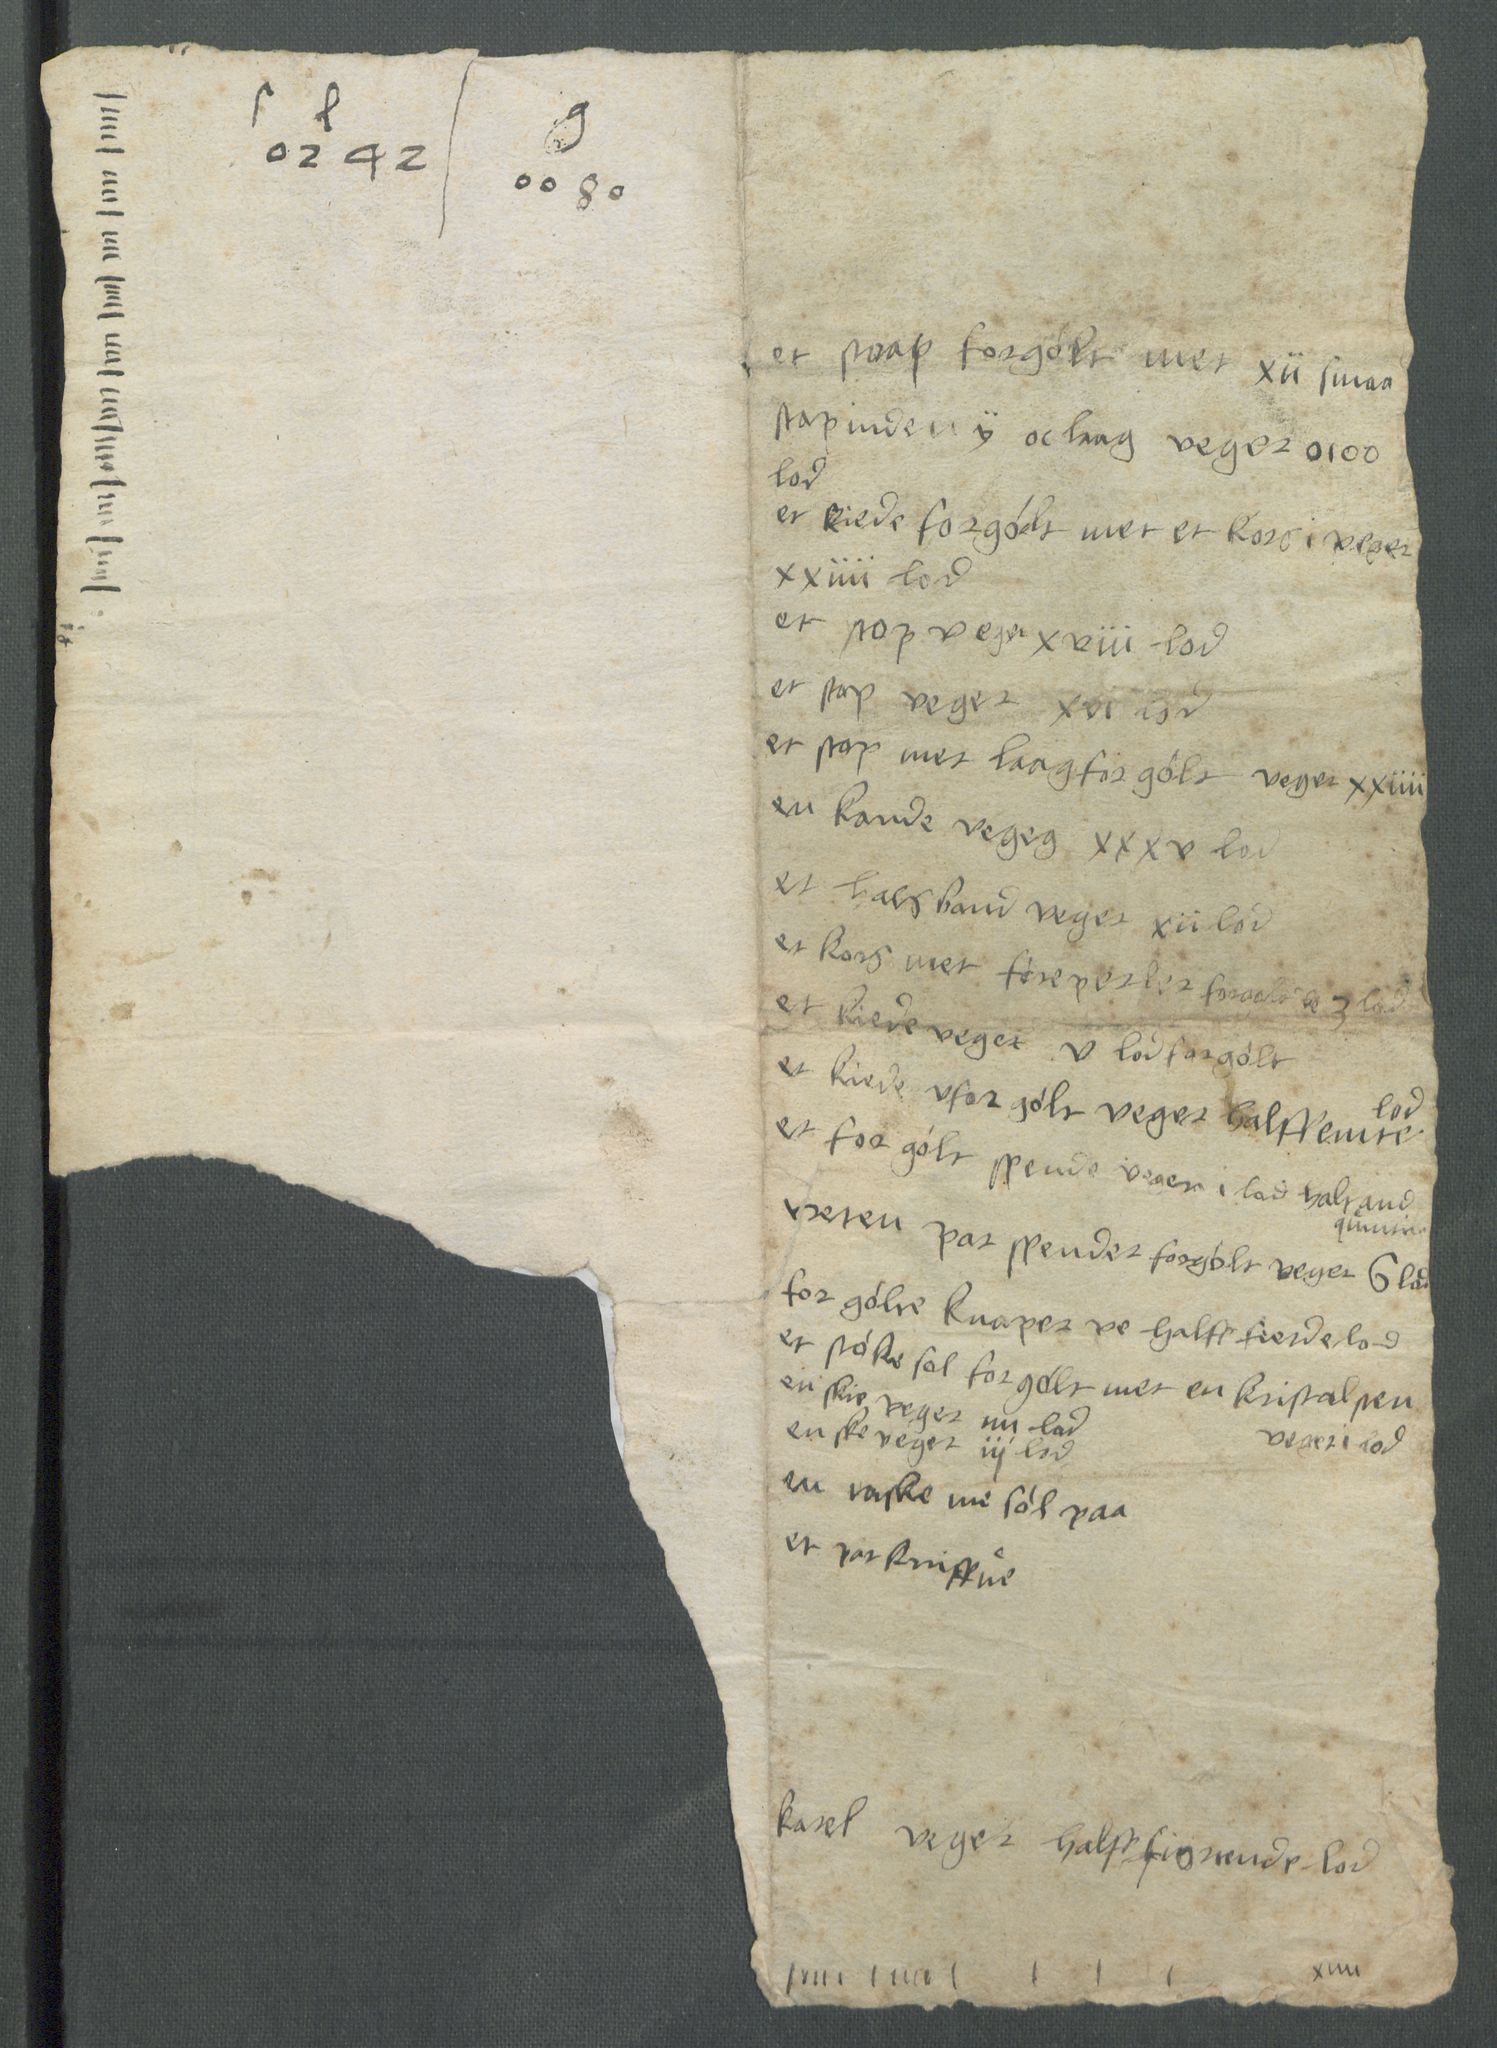 s l
0242
g
0080
et staap forgólt met xii smaa
stap inden ÿ oc laag veger 0100
lod
et kiede forgólt met et kors i veger
xxiiii lod
et stop veger xviii lod
et stap veger xvi lod
et stop met laag forgólt veger xxiiii
en kande vegeg xxxv lod
et hals band veger xii lod
et kors met fire perler forgolt ve 3 lod
et kiede veger v lod forgólt
et kiede vforgólt veger halffemte lod
et forgólt spende veger i lod halt and
quintin
treten par spender forgólt veger 6 lod
forgólte knaper ve halff fierde lod
et stóke sol forgólt met en kristal sten
veger i lod
en skie veger iiii lod
en ske veger iij lod
en taske me sól paa
et par kniffue
karel veger halff fiortende lod
xiiii